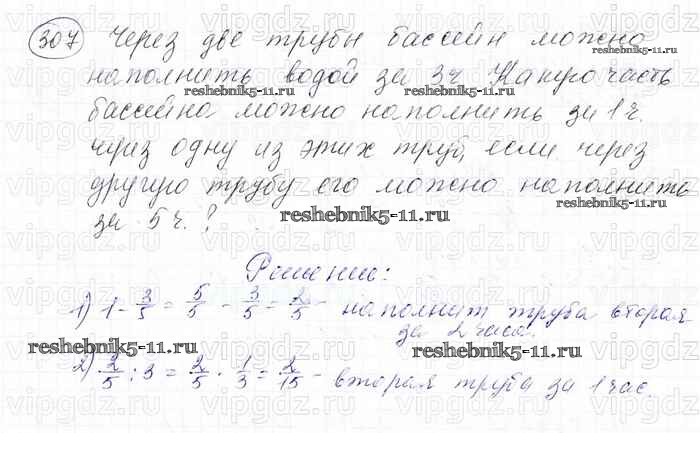 307 Через две трубы бассейн можно
наполнить водой за 3ч. Какую часть
бассейна можно наполнить за 1ч.
через одну из этих труб, если через
другую трубу его можно наполнить
за 5ч.?
Решение:
1) 1 - 3/5 = 5/5 - 3/5 = 2/5 - наполнит труба вторая
за 2 часа
2) 2/5 : 3 = 2/5 · 1/3 = 2/15 - вторая труба за 1 час.
reshebnik5-11.ru
reshebnik5-11.ru
reshebnik5-11.ru
reshebnik5-11.ru
reshebnik5-11.ru
reshebnik5-11.ru
reshebnik5-11.ru
vipgdz.ru